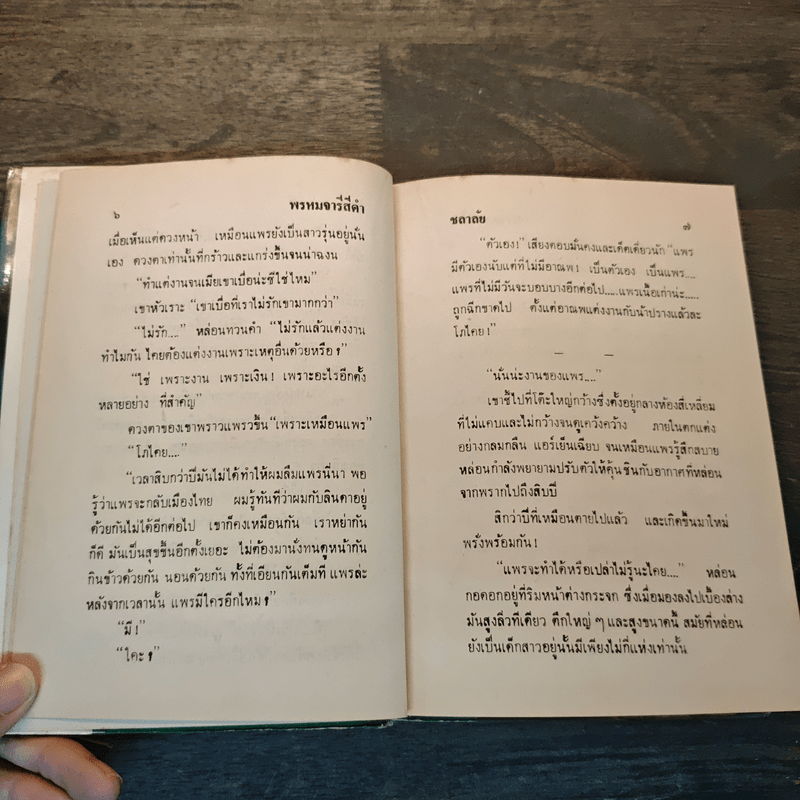 ๖
พรหมจารีสีดำ
เมื่อเห็นแต่ดวงหน้า เหมือนแพรยังเป็นสาวรุ่นอยู่นั่น
เอง ดวงตาเท่านั้นที่กร้าวและแกร่งขึ้นจนน่าฉงน
“ทำแต่งานจนเมียเขาเบื่อน่ะซีใช่ไหม”
เขาหัวเราะ “เขาเบื่อที่เราไม่รักเขามากกว่า”
“ไม่รัก....” หล่อนทวนคำ “ไม่รักแล้วแต่งงาน
ทำไมกัน ไคยต้องแต่งงานเพราะเหตุอื่นด้วยหรือ ?
“ใช่ เพราะงาน เพราะเงิน! เพราะอะไรอีกตั้ง
หลายอย่าง ที่สำคัญ”
ดวงตาของเขาพราวแพรวขึ้น “เพราะเหมือนแพร”
“โภไคย....”
“เวลาสิบกว่าปีมันไม่ได้ทำให้ผมลืมแพรนี่นา พอ
รู้ว่าแพรจะกลับเมืองไทย ผมรู้ทันทีว่าผมกับลินดาอยู่
ด้วยกันไม่ได้อีกต่อไป เขาก็คงเหมือนกัน เราหย่ากัน
ก็ดี มันเป็นสุขขึ้นอีกตั้งเยอะ ไม่ต้องมานั่งทนดูหน้ากัน
กินข้าวด้วยกัน นอนด้วยกัน ทั้งที่เอียนกันเต็มที แพรล่ะ
หลังจากเวลานั้น แพรมีใครอีกไหม ?”
“มี !”
“ใคะ ?”
ชลาลัย
๗
“ตัวเอง!” เสียงตอบมั่นคงและเด็ดเดี่ยวนัก “แพร
มีตัวเองนับแต่ที่ไม่มีอาณพ! เป็นตัวเอง เป็นแพร....
แพรที่ไม่มีวันจะบอบบางอีกต่อไป.....แพรเนื้อเก่าน่ะ.....
ถูกฉีกขาดไป ตั้งแต่อาณพแต่งงานกับน้าปรางแล้วละ
โภไคย!”
— —
“นั่นน่ะงานของแพร....”
เขาชี้ไปที่โต๊ะใหญ่กว้างซึ่งตั้งอยู่กลางห้องสี่เหลี่ยม
ที่ไม่แคบและไม่กว้างจนดูเคว้งคว้าง ภายในตกแต่ง
อย่างกลมกลืน แอร์เย็นเฉียบ จนเหมือนแพรรู้สึกสบาย
หล่อนกำลังพยายามปรับตัวให้คุ้นชินกับอากาศที่หล่อน
จากพรากไปถึงสิบปี
สิกว่าปีที่เหมือนตายไปแล้ว และเกิดขึ้นมาใหม่
พรั่งพร้อมกัน!
“แพรจะทำได้หรือเปล่าไม่รู้นะไคย....” หล่อน
กอดอกอยู่ที่ริมหน้าต่างกระจก ซึ่งเมื่อมองลงไปเบื้องล่าง
มันสูงลิ่วทีเดียว ตึกใหญ่ ๆ และสูงขนาดนี้ สมัยที่หล่อน
ยังเป็นเด็กสาวอยู่นั้นมีเพียงไม่กี่แห่งเท่านั้น